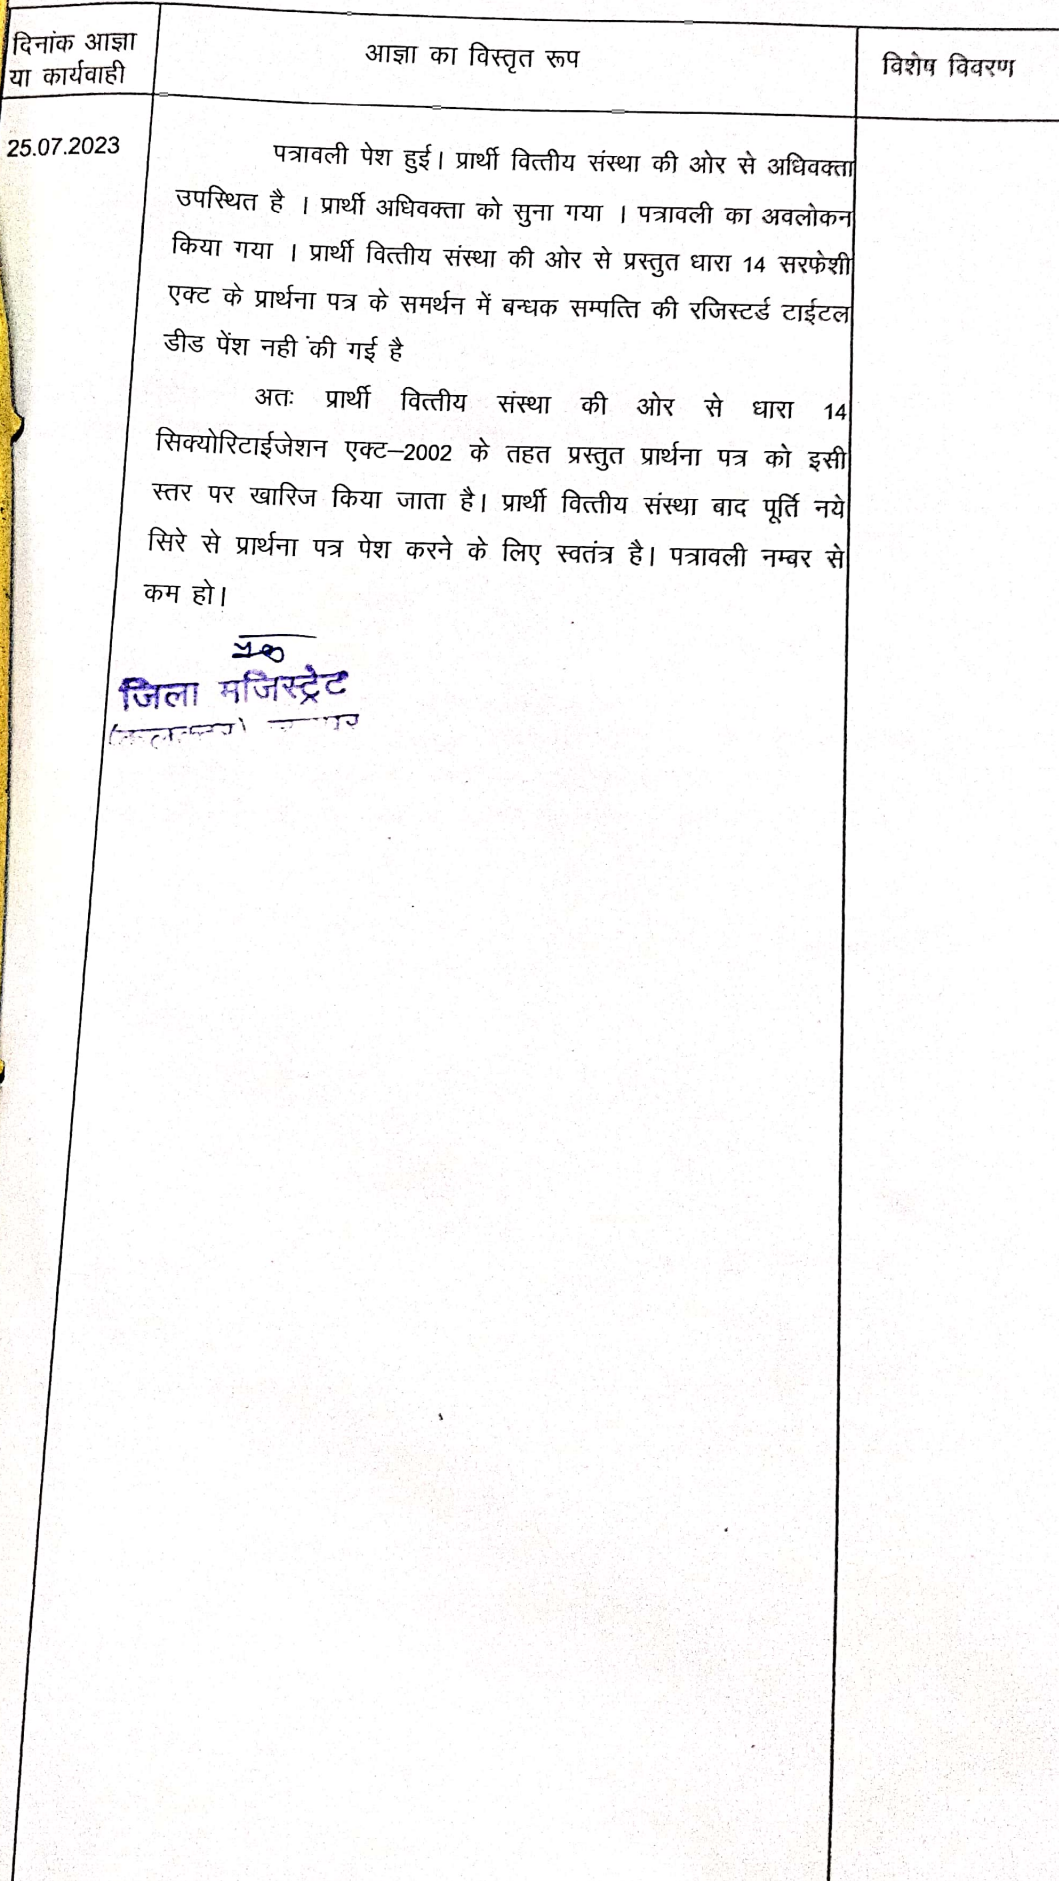 दिनांक आज्ञा
या कार्यवाही
आज्ञा का विस्तृत रूप
विशेष विवरण
25.07.2023
पत्रावली पेश हुई। प्रार्थी वित्तीय संस्था की ओर से अधिवक्ता
उपस्थित है । प्रार्थी अधिवक्ता को सुना गया । पत्रावली का अवलोकन
किया गया । प्रार्थी वित्तीय संस्था की ओर से प्रस्तुत धारा 14 सरफेशी
एक्ट के प्रार्थना पत्र के समर्थन में बन्धक सम्पत्ति की रजिस्टर्ड टाईटल
डीड पेंश नही की गई है
अतः प्रार्थी वित्तीय संस्था की ओर से धारा 14
सिक्योरिटाईजेशन एक्ट–2002 के तहत प्रस्तुत प्रार्थना पत्र को इसी
स्तर पर खारिज किया जाता है। प्रार्थी वित्तीय संस्था बाद पूर्ति नये
सिरे से प्रार्थना पत्र पेश करने के लिए स्वतंत्र है। पत्रावली नम्बर से
कम हो।
जिला मजिस्ट्रेट